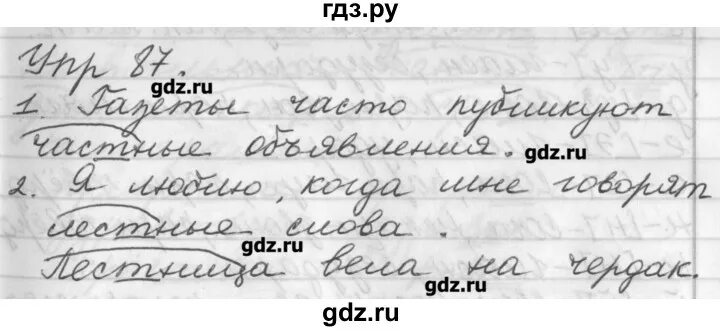 гдз.ру
Упр 87.
гдз.ру
1. Газеты часто публикуют
частные объявления.
гдз.ру
2. Я люблю, когда мне говорят
лестные слова.
гдз.ру
Лестница вела на чердак.
гдз.ру
гдз.ру